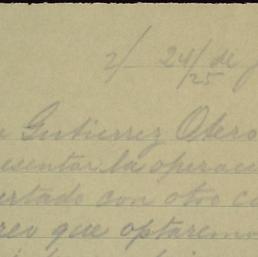 2/ 24/25 de
Gutierrez Otero
presentar la operac
ertado con otro c
reo que optaremo